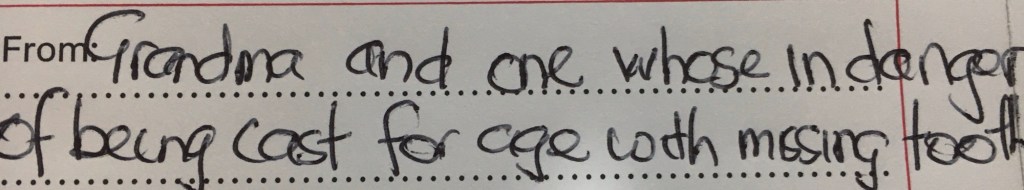 From: Grandma and one whose in danger
of being cast for age with missing tooth